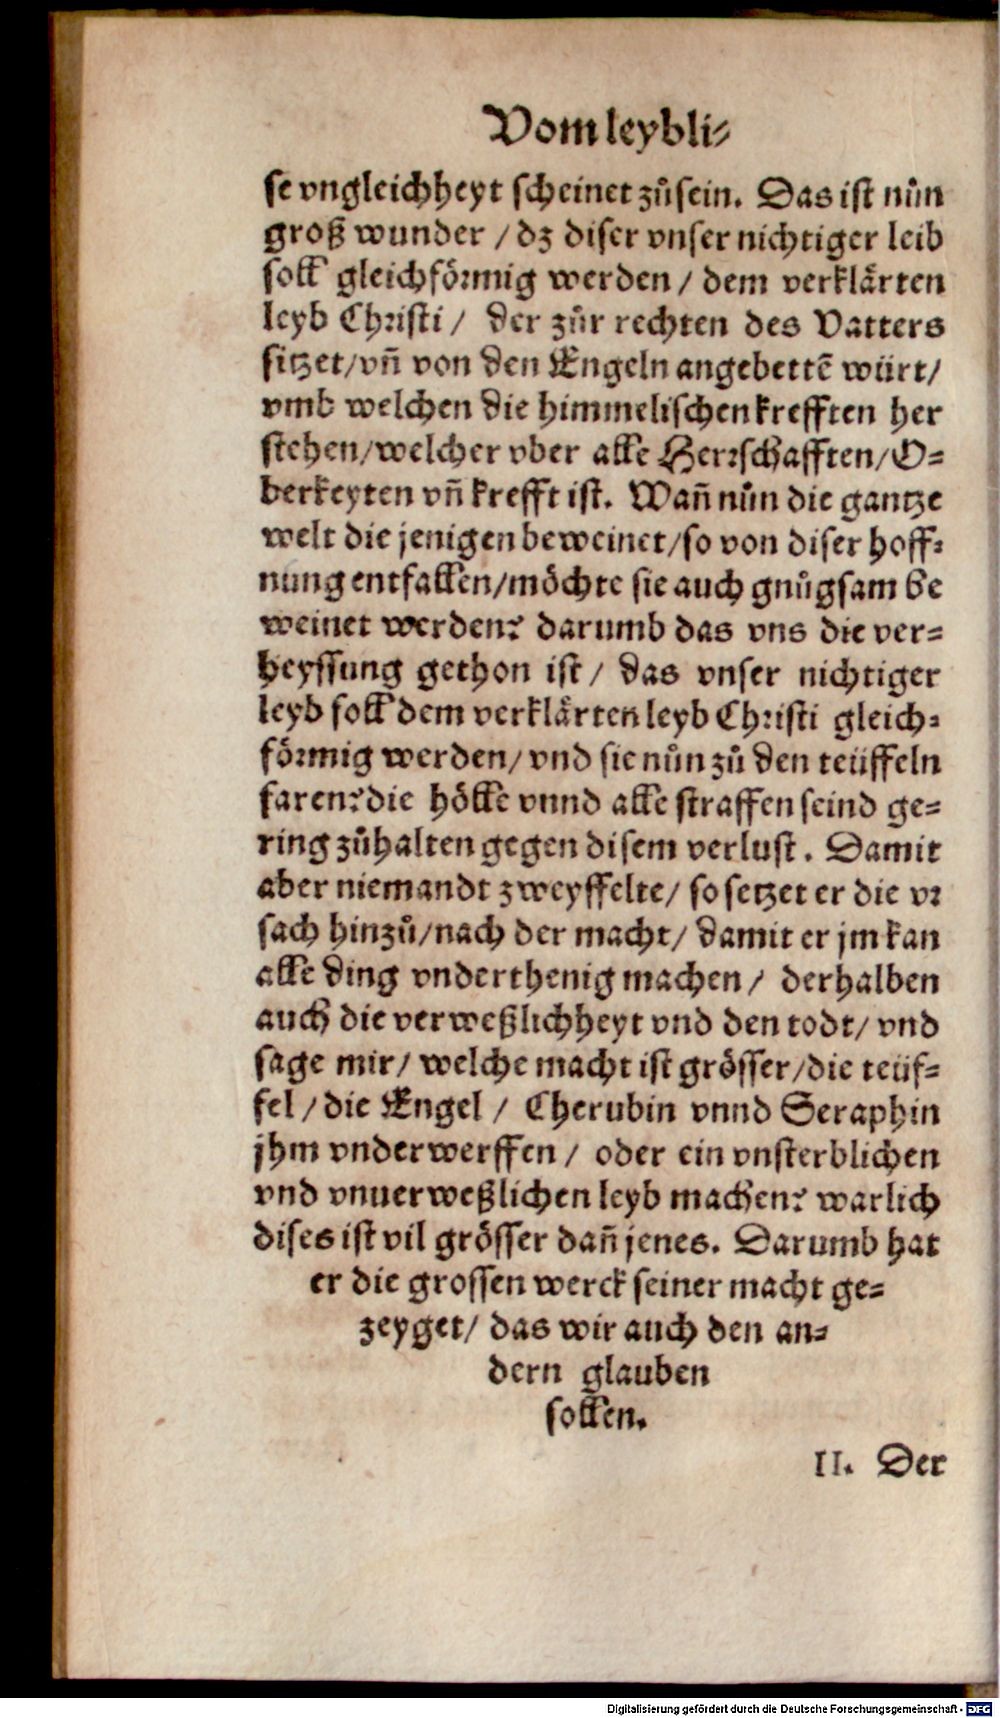 Vom leybli⸗
se vngleichheyt scheinet zůsein. Das ist nůn
groß wunder / dz diser vnser nichtiger leib
soll gleichförmig werden / dem verklärten
leyb Christi / der zůr rechten des Vatters
sitzet/vñ von den Engeln angebettẽ würt/
vmb welchen die himmelischen krefften her
stehen/welcher vber alle Herrschafften/O⸗
berkeyten vñ krefft ist. Wañ nůn die gantze
welt die jenigen beweinet/so von diser hoff⸗
nung entfallen/möchte sie auch gnůgsam be
weinet werden? darumb das vns die ver⸗
heyssung gethon ist / das vnser nichtiger
leyb soll dem verklärten leyb Christi gleich⸗
förmig werden/ vnd sie nůn zů den teüffeln
faren? die hölle vnnd alle straffen seind ge⸗
ring zůhalten gegen disem verlust. Damit
aber niemandt zweyffelte/ so setzet er die vr
sach hinzů/nach der macht/ damit er jm kan
alle ding vnderthenig machen / derhalben
auch die verweßlichheyt vnd den todt/ vnd
sage mir/ welche macht ist grösser/die teüf⸗
fel / die Engel / Cherubin vnnd Seraphin
jhm vnderwerffen / oder ein vnsterblichen
vnd vnuerweßlichen leyb machen? warlich
dises ist vil grösser dañ jenes. Darumb hat
er die grossen werck seiner macht ge⸗
zeyget/ das wir auch den an⸗
dern glauben
sollen.
II. Der
Digitalisierung gefördert durch die Deutsche Forschungsgemeinschaft - DFG